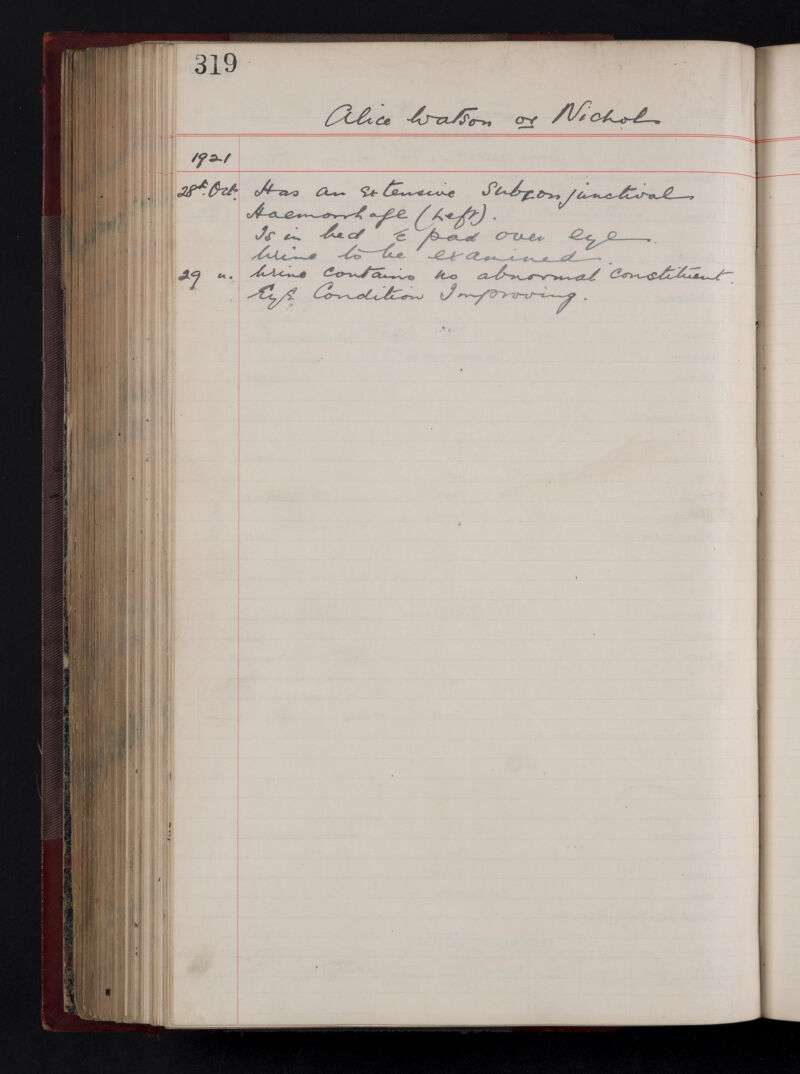 319
Alice Watson or Nichol
1921
28th. Oct. Has an extensive Subconjunctival
Haemorrhage (Left).
Is in bed c̄ pad over eye.
Urine to be examined.
29 ". Urine contains no abnormal constituent.
Eye Condition Improving.